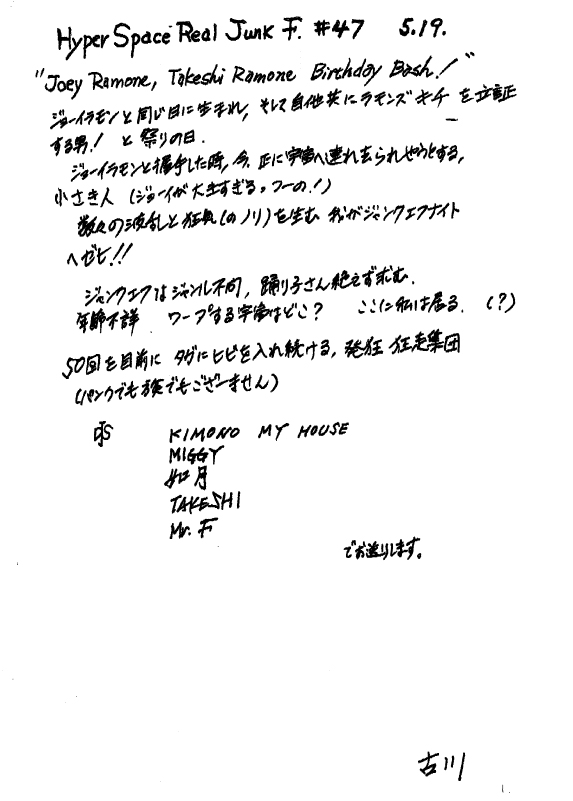 Hyper Space Real Junk F. #47 5.19.
"Joey Ramone, Takeshi Ramone Birthday Bash!"
ジョーイラモンと同じ日に生まれ, そして自他共にラモンズキチ を立証
する男! と祭りの日.
ジョーイラモンと握手した時, 今, 正に宇宙へ連れ去られやうとする,
小さき人 (ジョーイが大きすぎる。フーの!)
数々の波乱と狂気(のノリ)を生む 我がジャンクエフナイト
へゼヒ!!
ジャンクエフはジャンル不問, 踊り子さん絶えず求む.
年齢不詳 ワープする宇宙はどこ? ここに私は居る. (?)
50回を目前に タガにヒビを入れ続ける, 発狂 狂走集団
(パンクでも族でもございません)
DJS KIMONO MY HOUSE
MIGGY
如月
TAKESHI
Mr. F
でお送りします。
古川